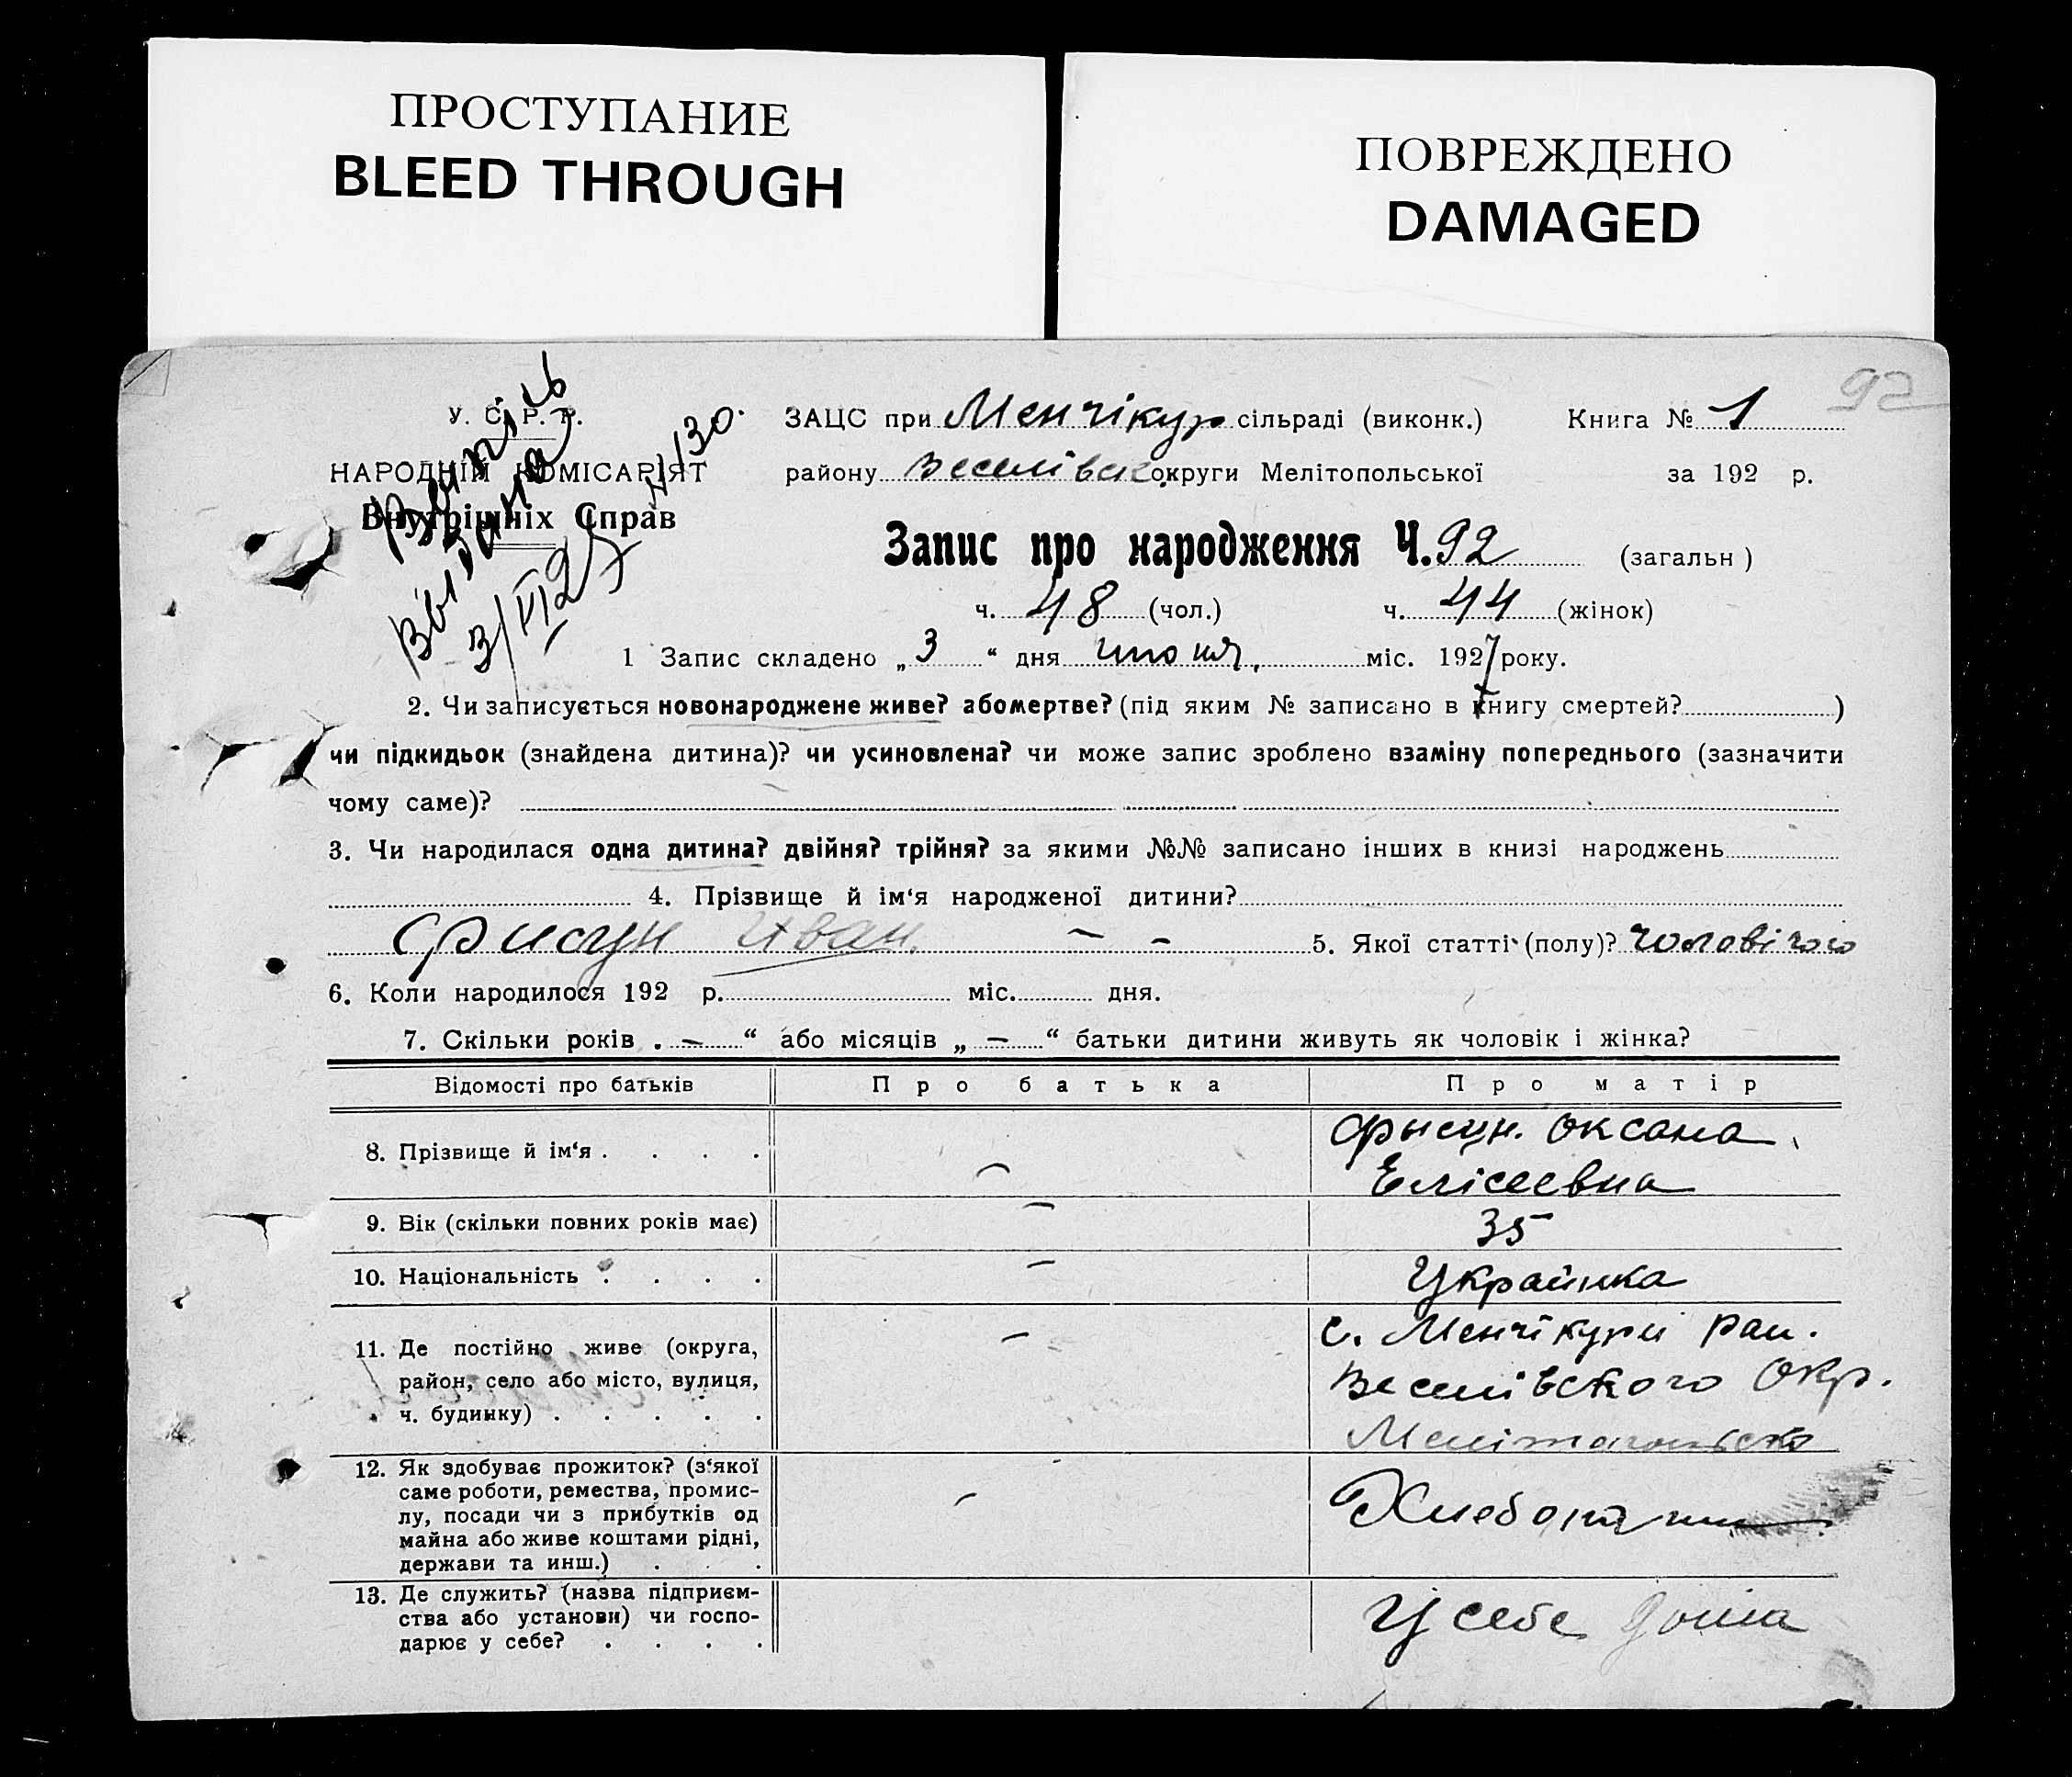 ПРОСТУПАНИЕ
BLEED THROUGH
ПОВРЕЖДЕНО
DAMAGED
92
У. С. Р. Р.
НАРОДНІЙ КОМІСАРІЯТ
Внутрішніх Справ
Витпісь
Видана
3/VI 27
N 130.
ЗАЦС при Менчікур сільраді (виконк.) Книга № 1
району Веселівск округи Мелітопольської за 192 р.
Запис про народження Ч. 92 (загальн )
ч. 48 (чол.) ч. 44 (жінок)
1 Запис складено „ 3 “ дня июня, міс. 1927 року.
2. Чи записується новонароджене живе? або мертве? (під яким № записано в книгу смертей? )
чи підкидьок (знайдена дитина)? чи усиновлена? чи може запис зроблено взаміну попереднього (зазначити
чому саме)?
3. Чи народилася одна дитина? двійня? трійня? за якими №№ записано інших в книзі народжень
4. Прізвище й ім‘я народженої дитини?
Фисун Иван. — — 5. Якої статті (полу)? чоловічого
6. Коли народилося 192 р. міс. дня.
7. Скільки років . — “ або місяців „ — “ батьки дитини живуть як чоловік і жінка?
Відомості про батьків Про батька Про матір
8. Прізвище й ім‘я . . . . — Фысун. Оксана
Елісеевна
9. Вік (скільки повних років має) — 35
10. Національність . . . . — Украинка
11. Де постійно живе (округа, — с. Менчікури раи.
район, село або місто, вулиця, Веселівского Окр.
ч. будинку) . . . . . Мелітопольско
12. Як здобуває прожиток? (з‘якої
саме роботи, ремества, промис-
лу, посади чи з прибутків од —
майна або живе коштами рідні,
держави та инш.) . . .
13. Де служить? (назва підприєм-
ства або установи) чи госпо- У себе дома
дарює у себе? . . . .